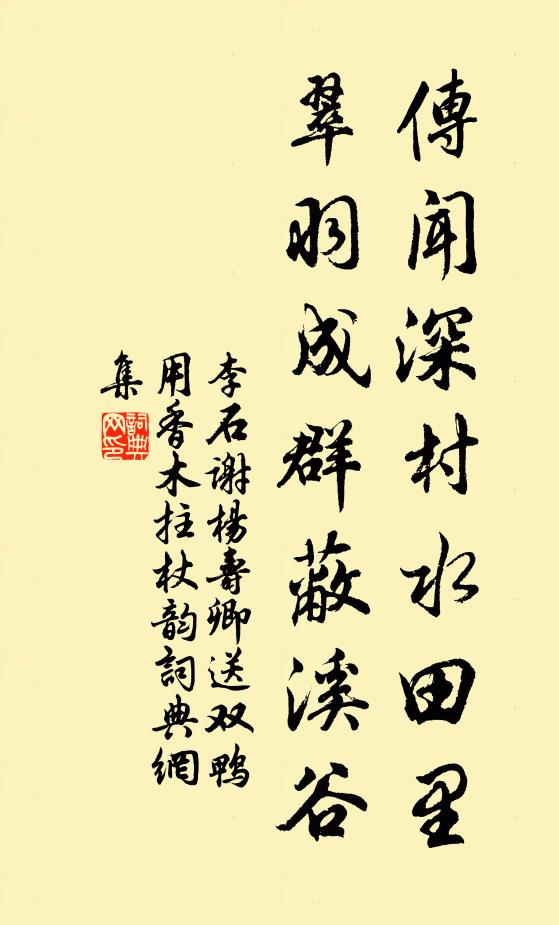 傳聞深村水田里
翠羽成群蔽溪谷
李石謝楊壽卿送双鴨
用香木拄杖韵詞典網
集
詞典
网印